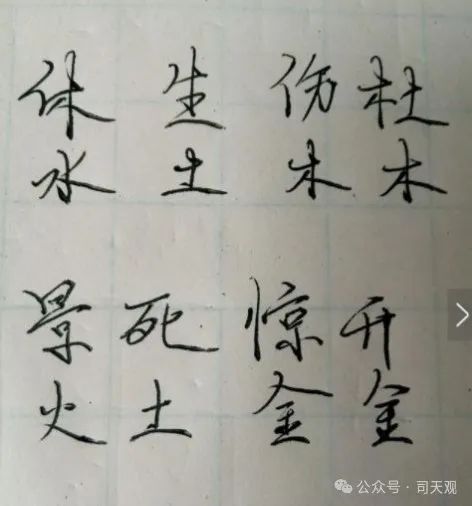 休 生 伤 杜
水 土 木 木
景 死 惊 开
火 土 金 金
公众号 · 司天观